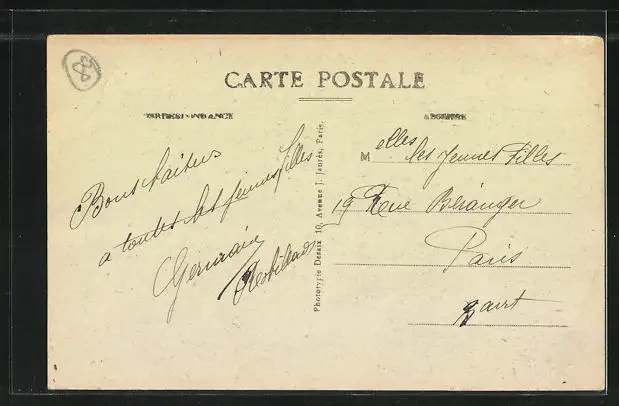 8
CARTE POSTALE
CORRESPONDANCE
Bons baisers
a toutes les jeunes filles
Germaine
ADRESSE
Melles les jeunes Filles
19 Rue Béranger
Paris
3 arrt
Phototypie Desaix 10, Avenue J. Jaurès, Paris.